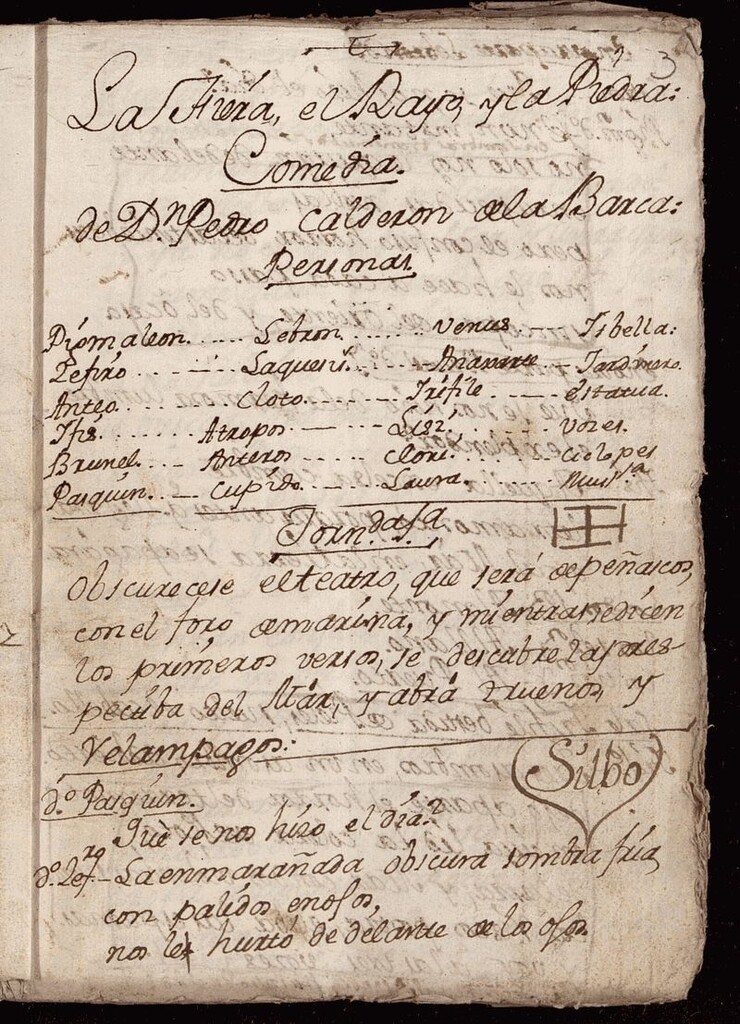 3
La Fiera, el Rayo, y la Piedra:
Comedia.
de D.n Pedro Calderon de la Barca:
Personas.
Pigmaleon. .... Lebron. .... Venus .... Isbella:
Zefiro .... Laquesis. .... Anaxarte — Jardinero.
Anteo. .... Cloto. .... Trifile — estatua.
Ifis. .... Atropos — Lisi. .... vozes.
Brunel. — Anteros .... Clori. .... Ciclopes
Pasquin. — Cupido. — Laura. — Mus.ca
Jorn.da 1.a
Obscurecese el teatro, que será de peñascos,
con el foro de marina, y mientras se dicen
los primeros versos, se descubre la pers-
pectiba del Mar, y abrá truenos, y
Relampagos:
Silbo
d.o Pasquin.
Què se nos hizo el dia?
d.o Zef.ro — La enmarañada obscura sombra fria,
con palidos enojos,
nos le hurtó de delante de los ojos.